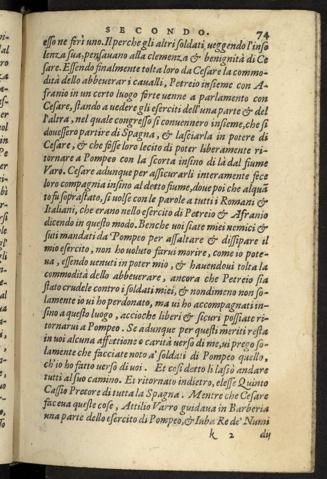 SECONDO. 74
esso ne ferì uno. Il perche gli altri soldati, ueggendo l'inso
lenza sua, pensauano alla clemenza & benignità di Ce
sare. Essendo finalmente tolta loro da Cesare la commo-
dità dello abbeuerar i caualli, Petreio insieme con A-
franio in un certo luogo forte uenne a parlamento con
Cesare, stando a uedere gli eserciti dell'una parte & del
l'altra, nel quale congresso si conuennero insieme, che si
douessero partire di Spagna, & lasciarla in potere di
Cesare, & che fosse loro lecito di poter liberamente ri-
tornare a Pompeo con la scorta insino di là dal fiume
Varo. Cesare adunque per assicurarli interamente fece
loro compagnia insino al detto fiume, doue poi che alquā
to fu soprastato, si uolse con le parole a tutti i Romani &
Italiani, che erano nello esercito di Petreio & Afranio
dicendo in questo modo. Benche uoi siate miei nemici &
sui mandati da Pompeo per assaltare & dissipare il
mio esercito, non ho uoluto farui morire, come io pote-
ua, essendo uenuti in poter mio, & hauendoui tolta la
commodità dello abbeuerare, ancora che Petreio sia
stato crudele contro i soldati miei, & nondimeno non so-
lamente io ui ho perdonato, ma ui ho accompagnati in-
sino a questo luogo, accioche liberi & sicuri possiate ri-
tornarui a Pompeo. Se adunque per questi meriti resta
in uoi alcuna affettione o carità uerso di me, ui prego so-
lamente che facciate noto a' soldati di Pompeo quello,
ch'io ho fatto uerso di uoi. Et così detto li lasciò andare
tutti al suo camino. Et ritornato indietro, elesse Quinto
Cassio Pretore di tutta la Spagna. Mentre che Cesare
faceua queste cose, Attilio Varro guidaua in Barberia
una parte dello esercito di Pompeo, & Iuba Re de' Numi
k 2 dij